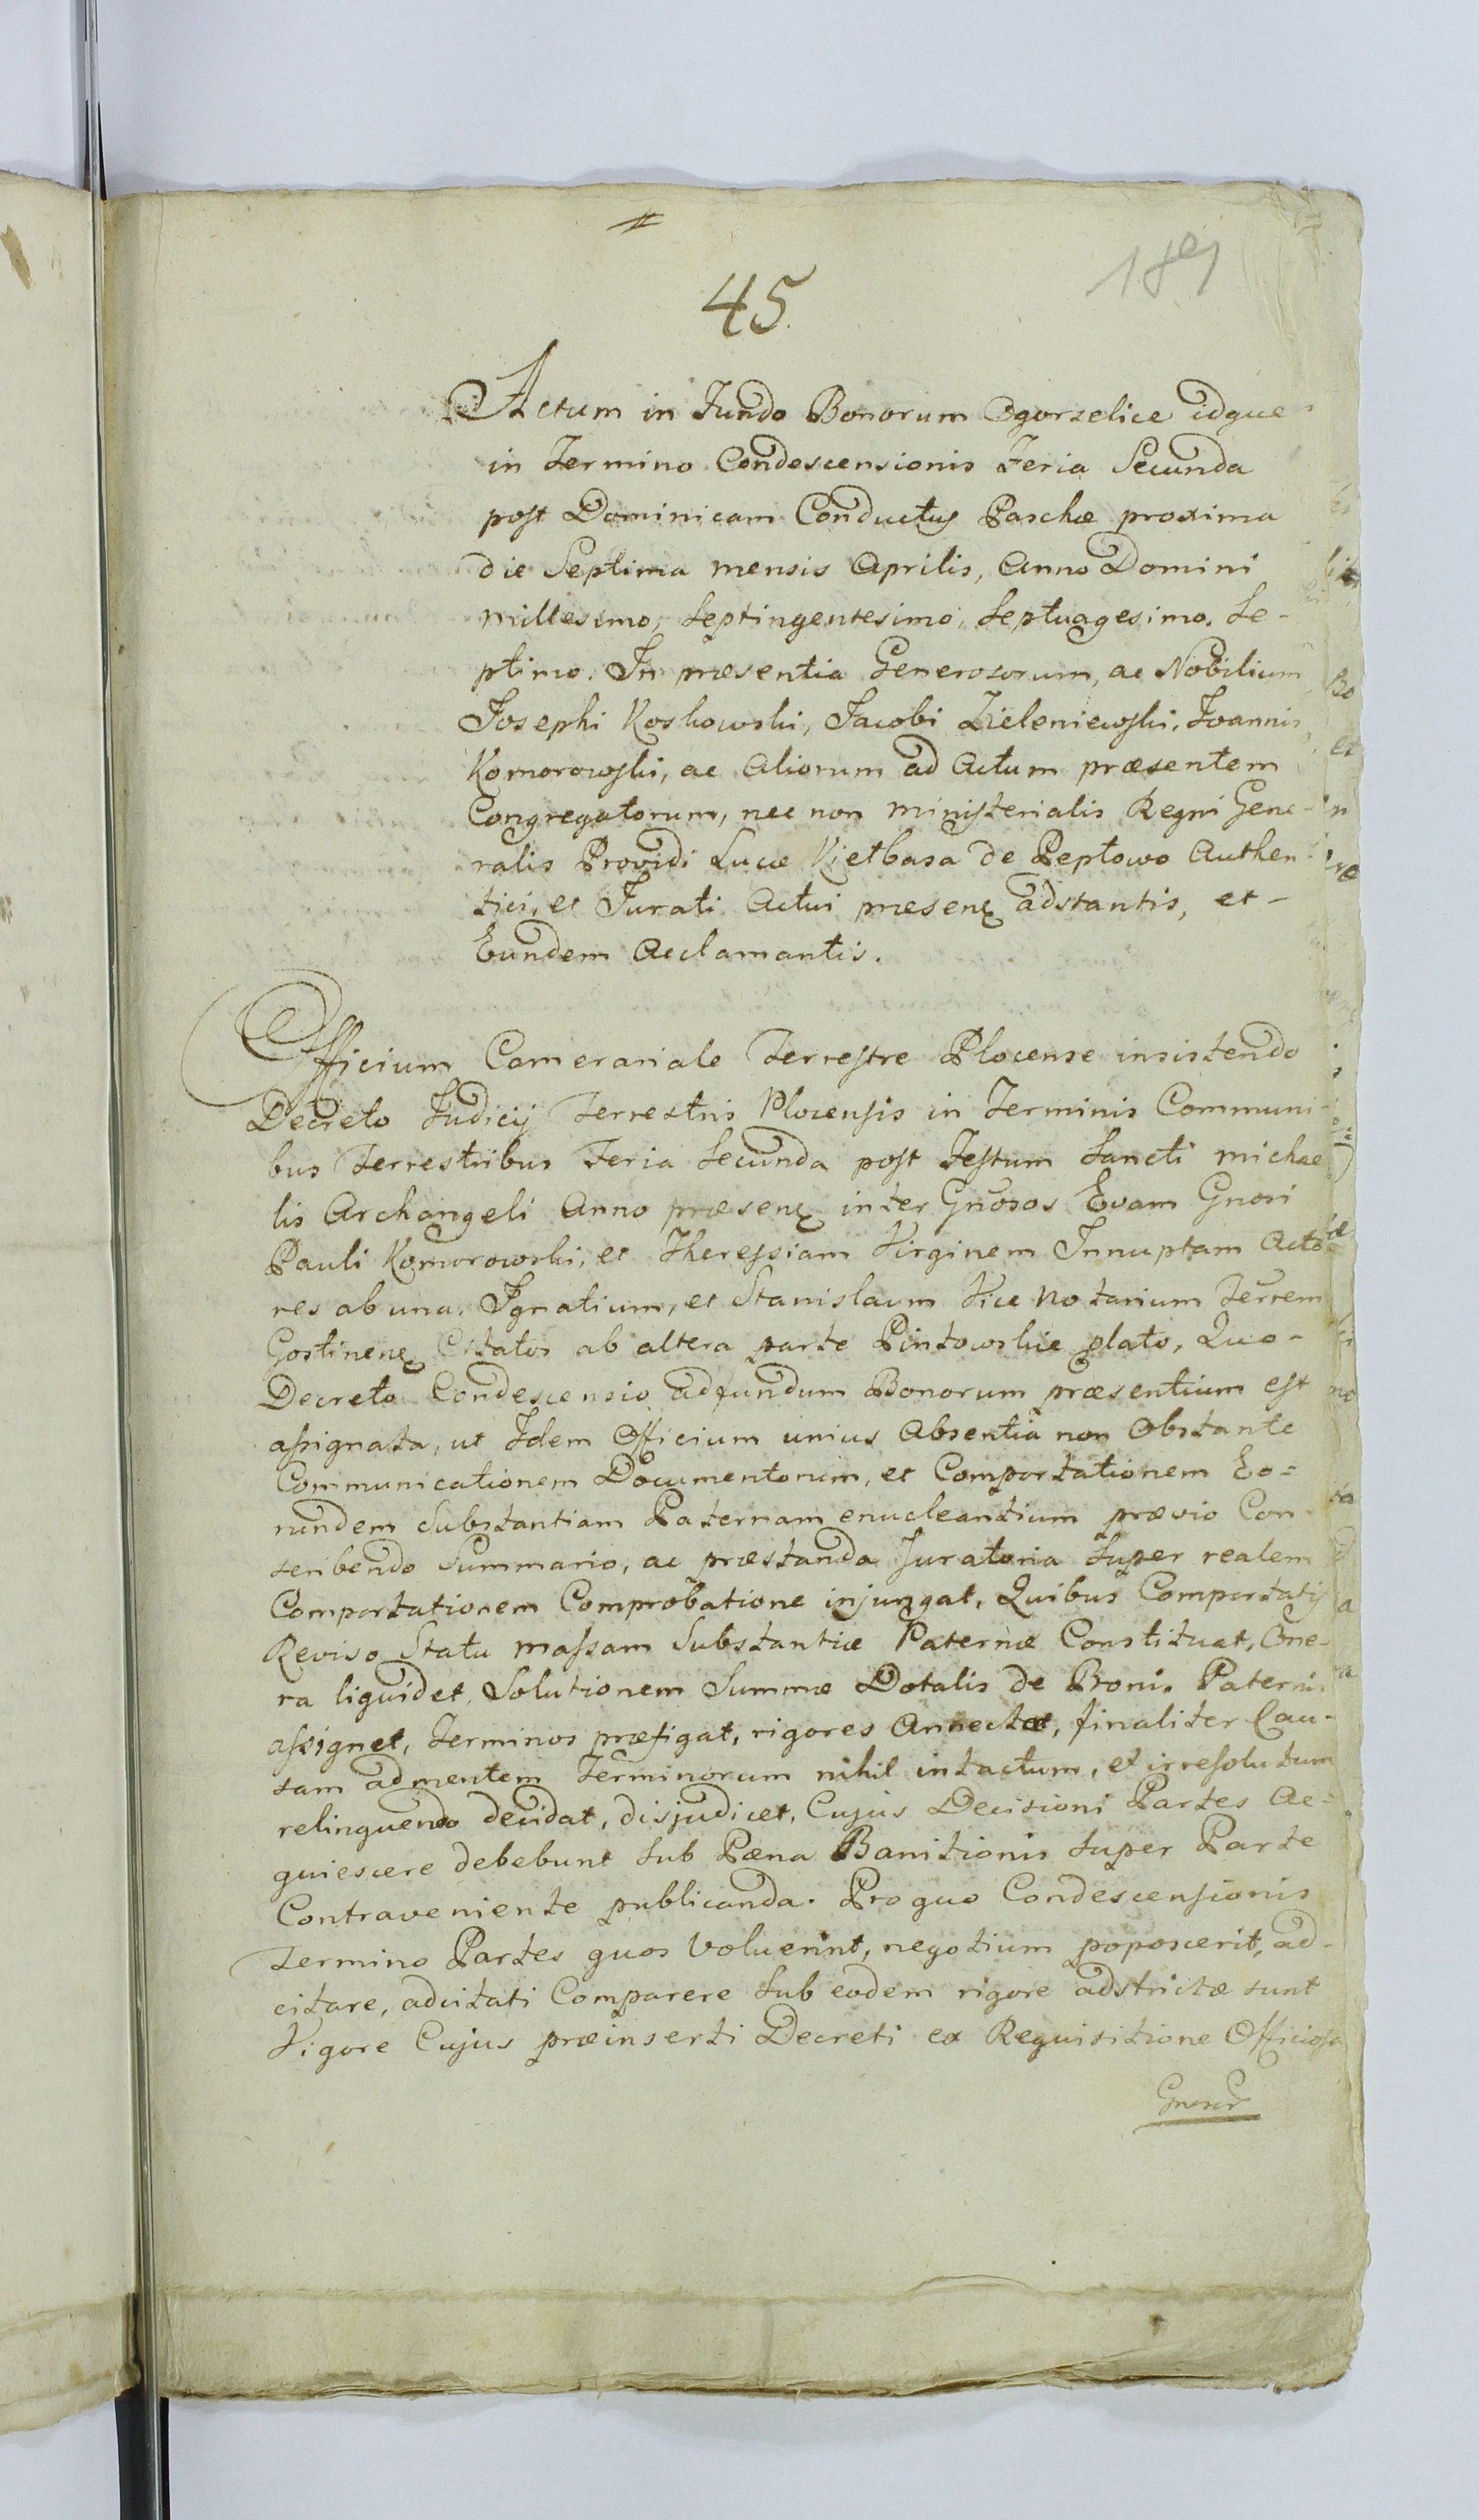 189
45.
Actum in Fundo Bonorum Ogorzelice idque
in Termino Condescensionis Feria Secunda
post Dominicam Conductus Paschæ proxima
die Septima mensis Aprilis, Anno Domini
millesimo, Septingentesimo, Septuagesimo. Se-
ptimo. In præsentia Generosorum, ac Nobilium
Josephi Koskowski, Jacobi Zieleniewski, Joannis
Komorowski, ac Aliorum ad Actum præsentem
Congregatorum, nec non Ministerialis Regni Gene-
ralis Providi Lucæ Kiełbasa de Peptowo Authen-
tici, et Jurati Actui præsenꝫ adstantis, et -
Eundem Acclamantis.
Officium Camerariale Terrestre Plocense insistendo
Decreto Judicij Terrestris Plocensis in Terminis Communi-
bus Terrestribus Feria Secunda post Festum Sancti Michae
lis Archangeli Anno præsenꝫ inter Gnosos Evam Gnosi
Pauli Komorowski, et Theressiam Virginem Innuptam Acto-
res ab una. Ignatium, et Stanislaum Vice Notarium Terrem
Gostinenꝫ Citatos ab altera parte Pintowskie plato, Quo-
Decreto Condescensio ad fundum Bonorum præsentium est
assignata, ut Idem Officium unius Absentia non Obstante
Communicationem Documentorum, et Comportationem Eo=
rundem Substantiam Paternam enucleantium prævio Con-
scribendo Summario, ac præstanda Juratoria Super realem
Comportationem Comprobatione injungat, Quibus Comportatis
Reviso Statu massam Substantiæ Paternæ Constituat, One-
ra liquidet, Solutionem Summæ Dotalis de Bonis Paternis
assignet, terminos præfigat, rigores Annectat, finaliter Cau-
sam ad mentem Terminorum nihil intactum, et irresolutum
relinquendo decidat, disjudicet, Cujus Decisioni Partes Ac=
quiescere debebunt Sub Pæna Banitionis Super Parte
Contraveniente publicanda. Pro quo Condescensionis
Termino Partes quos Voluerint, negotium poposcerit, ad-
citare, adcitati Comparere Sub eodem rigore adstrictæ sunt
Vigore Cujus præinserti Decreti ex Requisitione Officiosa